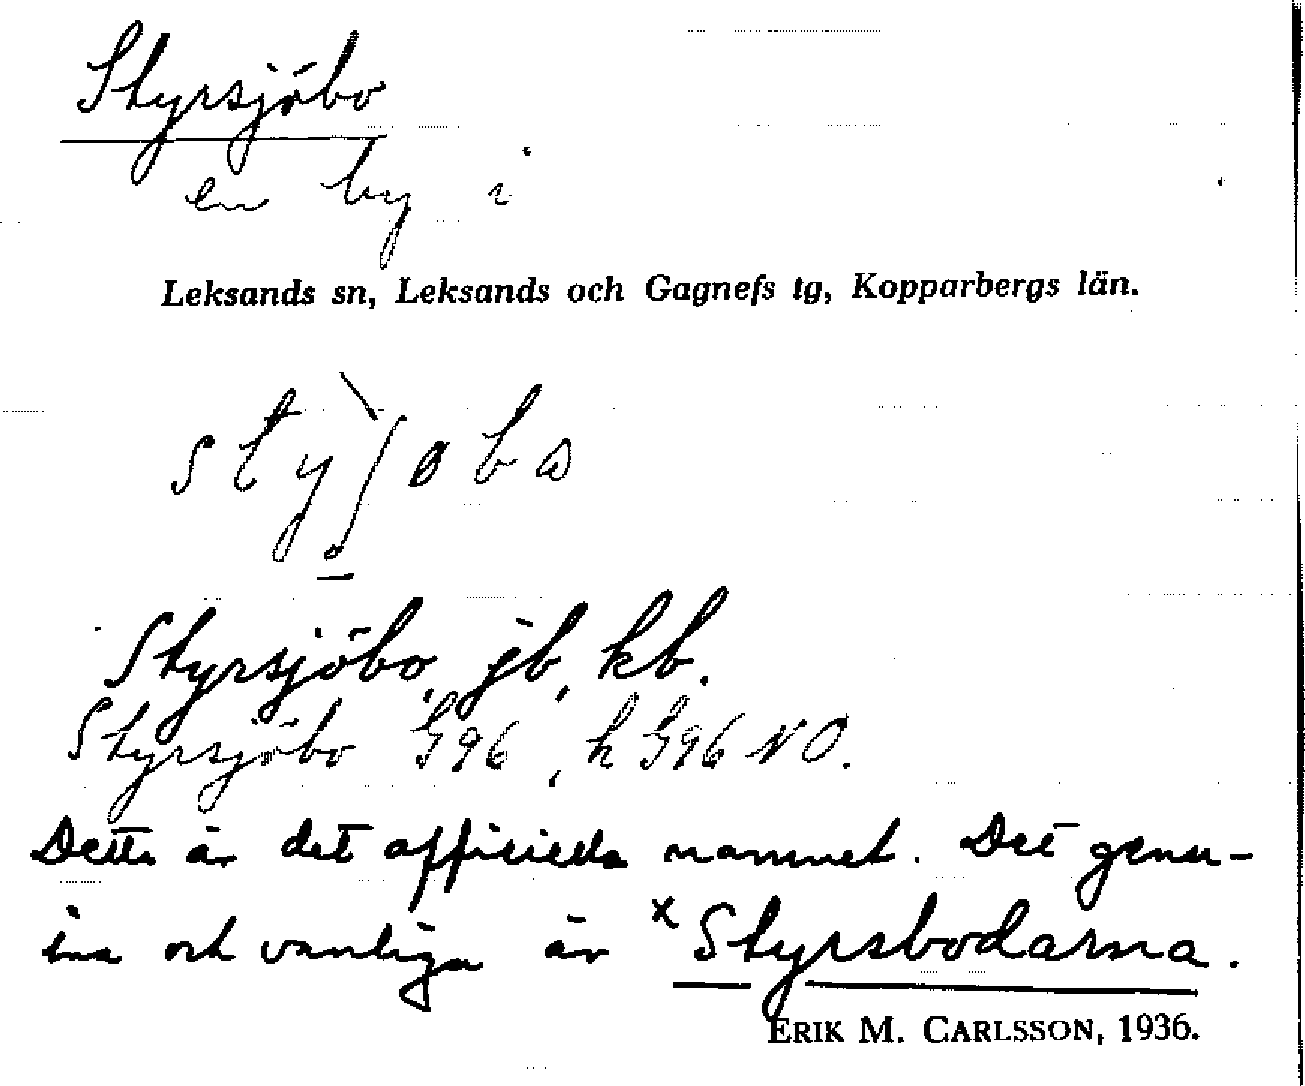 Styrsjöbo
en by i
Leksands sn, Leksands och Gagnefs tg, Kopparbergs län.
Styrsjöbo, jb, kb.
Styrsjöbo G96, h G96 NO.
Detta är det officiella namnet. Det genu-
ina och vanliga är ˣStyrsbodarna.
ERIK M. CARLSSON, 1936.